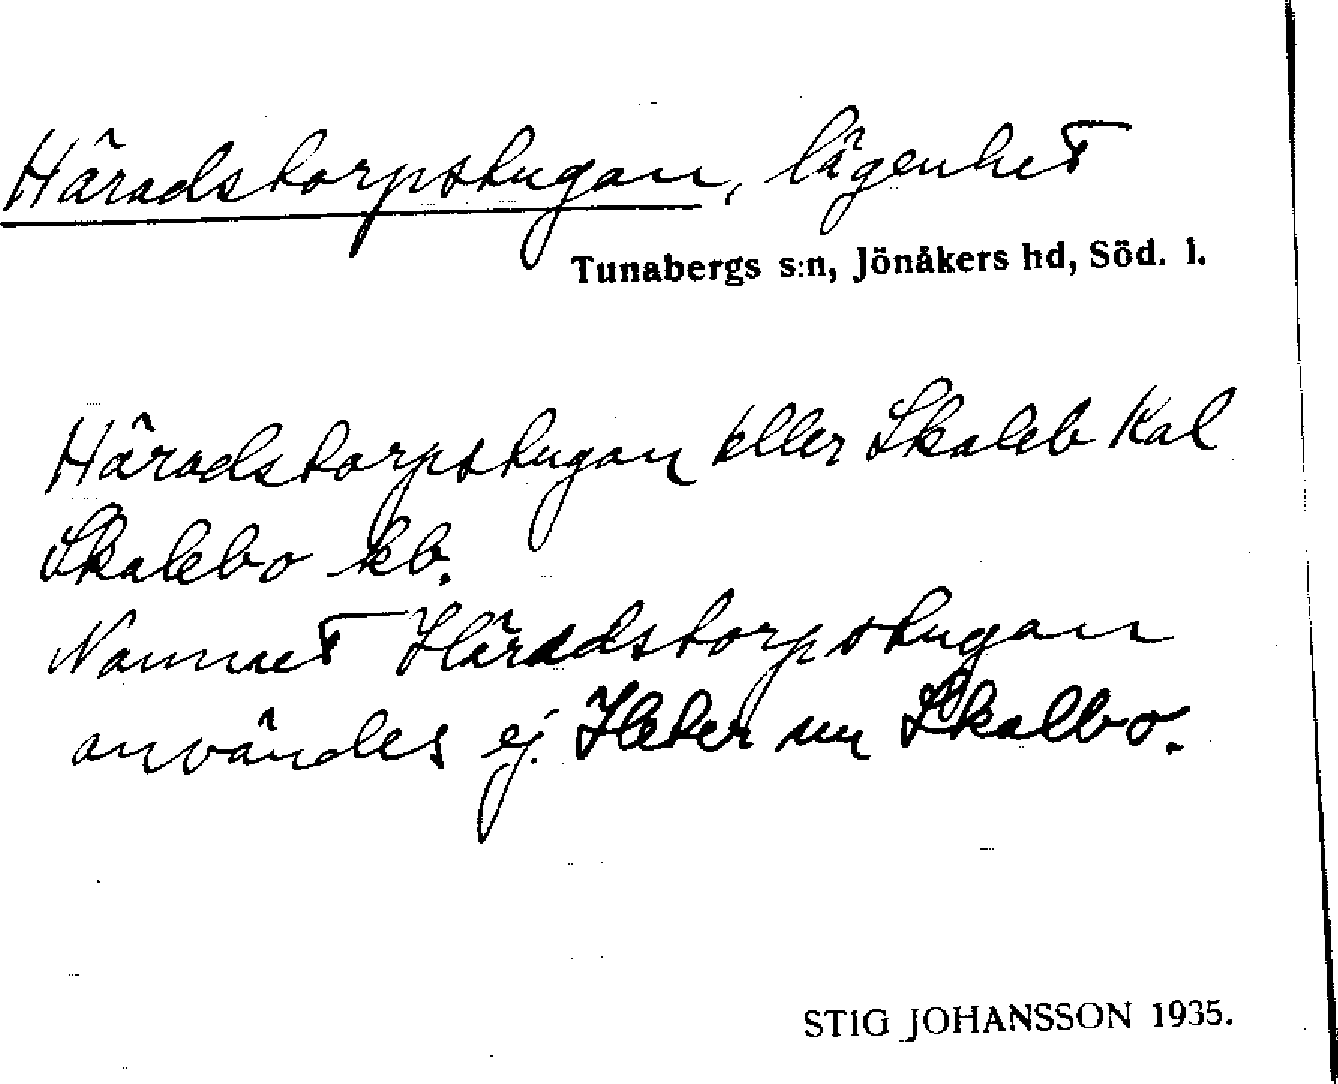 Häradstorpstugan, lägenhet
Tunabergs s:n, Jönåkers hd, Söd. l.
Häradstorpstugan eller Skaleb Kal
Skalebo kb.
Namnet Häradstorpstugan
användes ej. Heter nu Skalbo.
STIG JOHANSSON 1935.